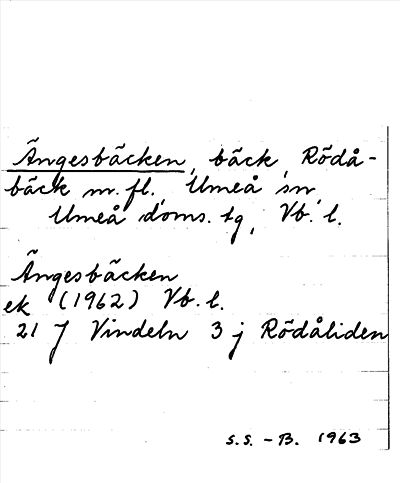 Ängesbäcken, bäck, Rödå-
bäck m.fl., Umeå sn,
Umeå doms. tg, Vb. l.
Ängesbäcken
ek (1962) Vb. l.
21 J Vindeln 3 j Rödåliden
S.S. - B. 1963